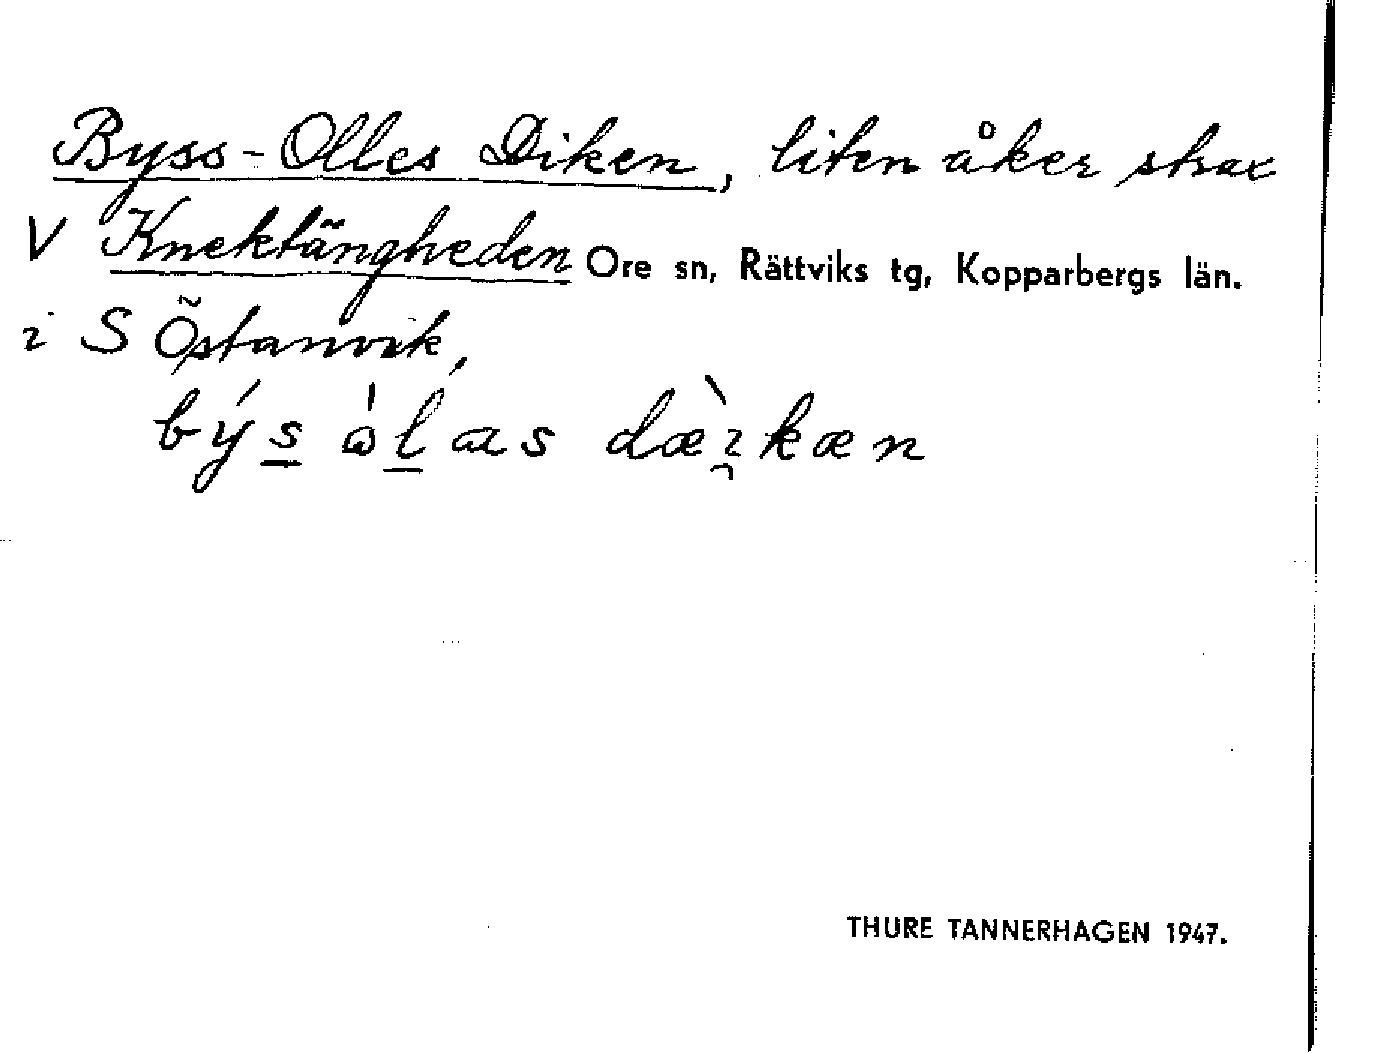 Byss-Olles Diken, liten åker strax
V Knektängheden Ore sn, Rättviks tg, Kopparbergs län.
i S Östanvik,
býs̲ ὼl̲æs dæ̀ı̯kæn
THURE TANNERHAGEN 1947.